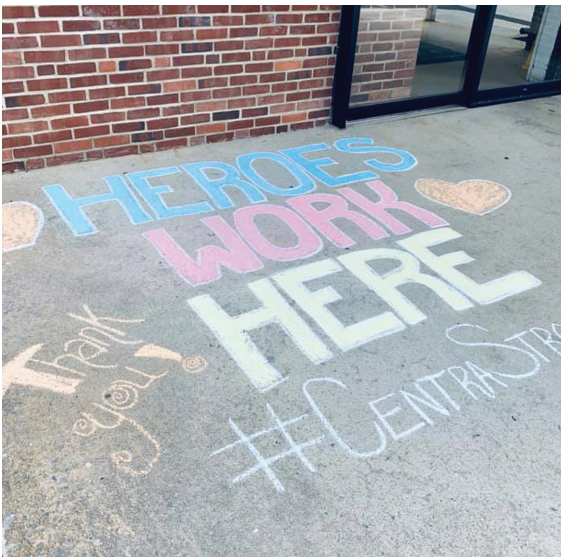 HEROES
WORK
HERE
Thank
you!
#CENTRASTRO